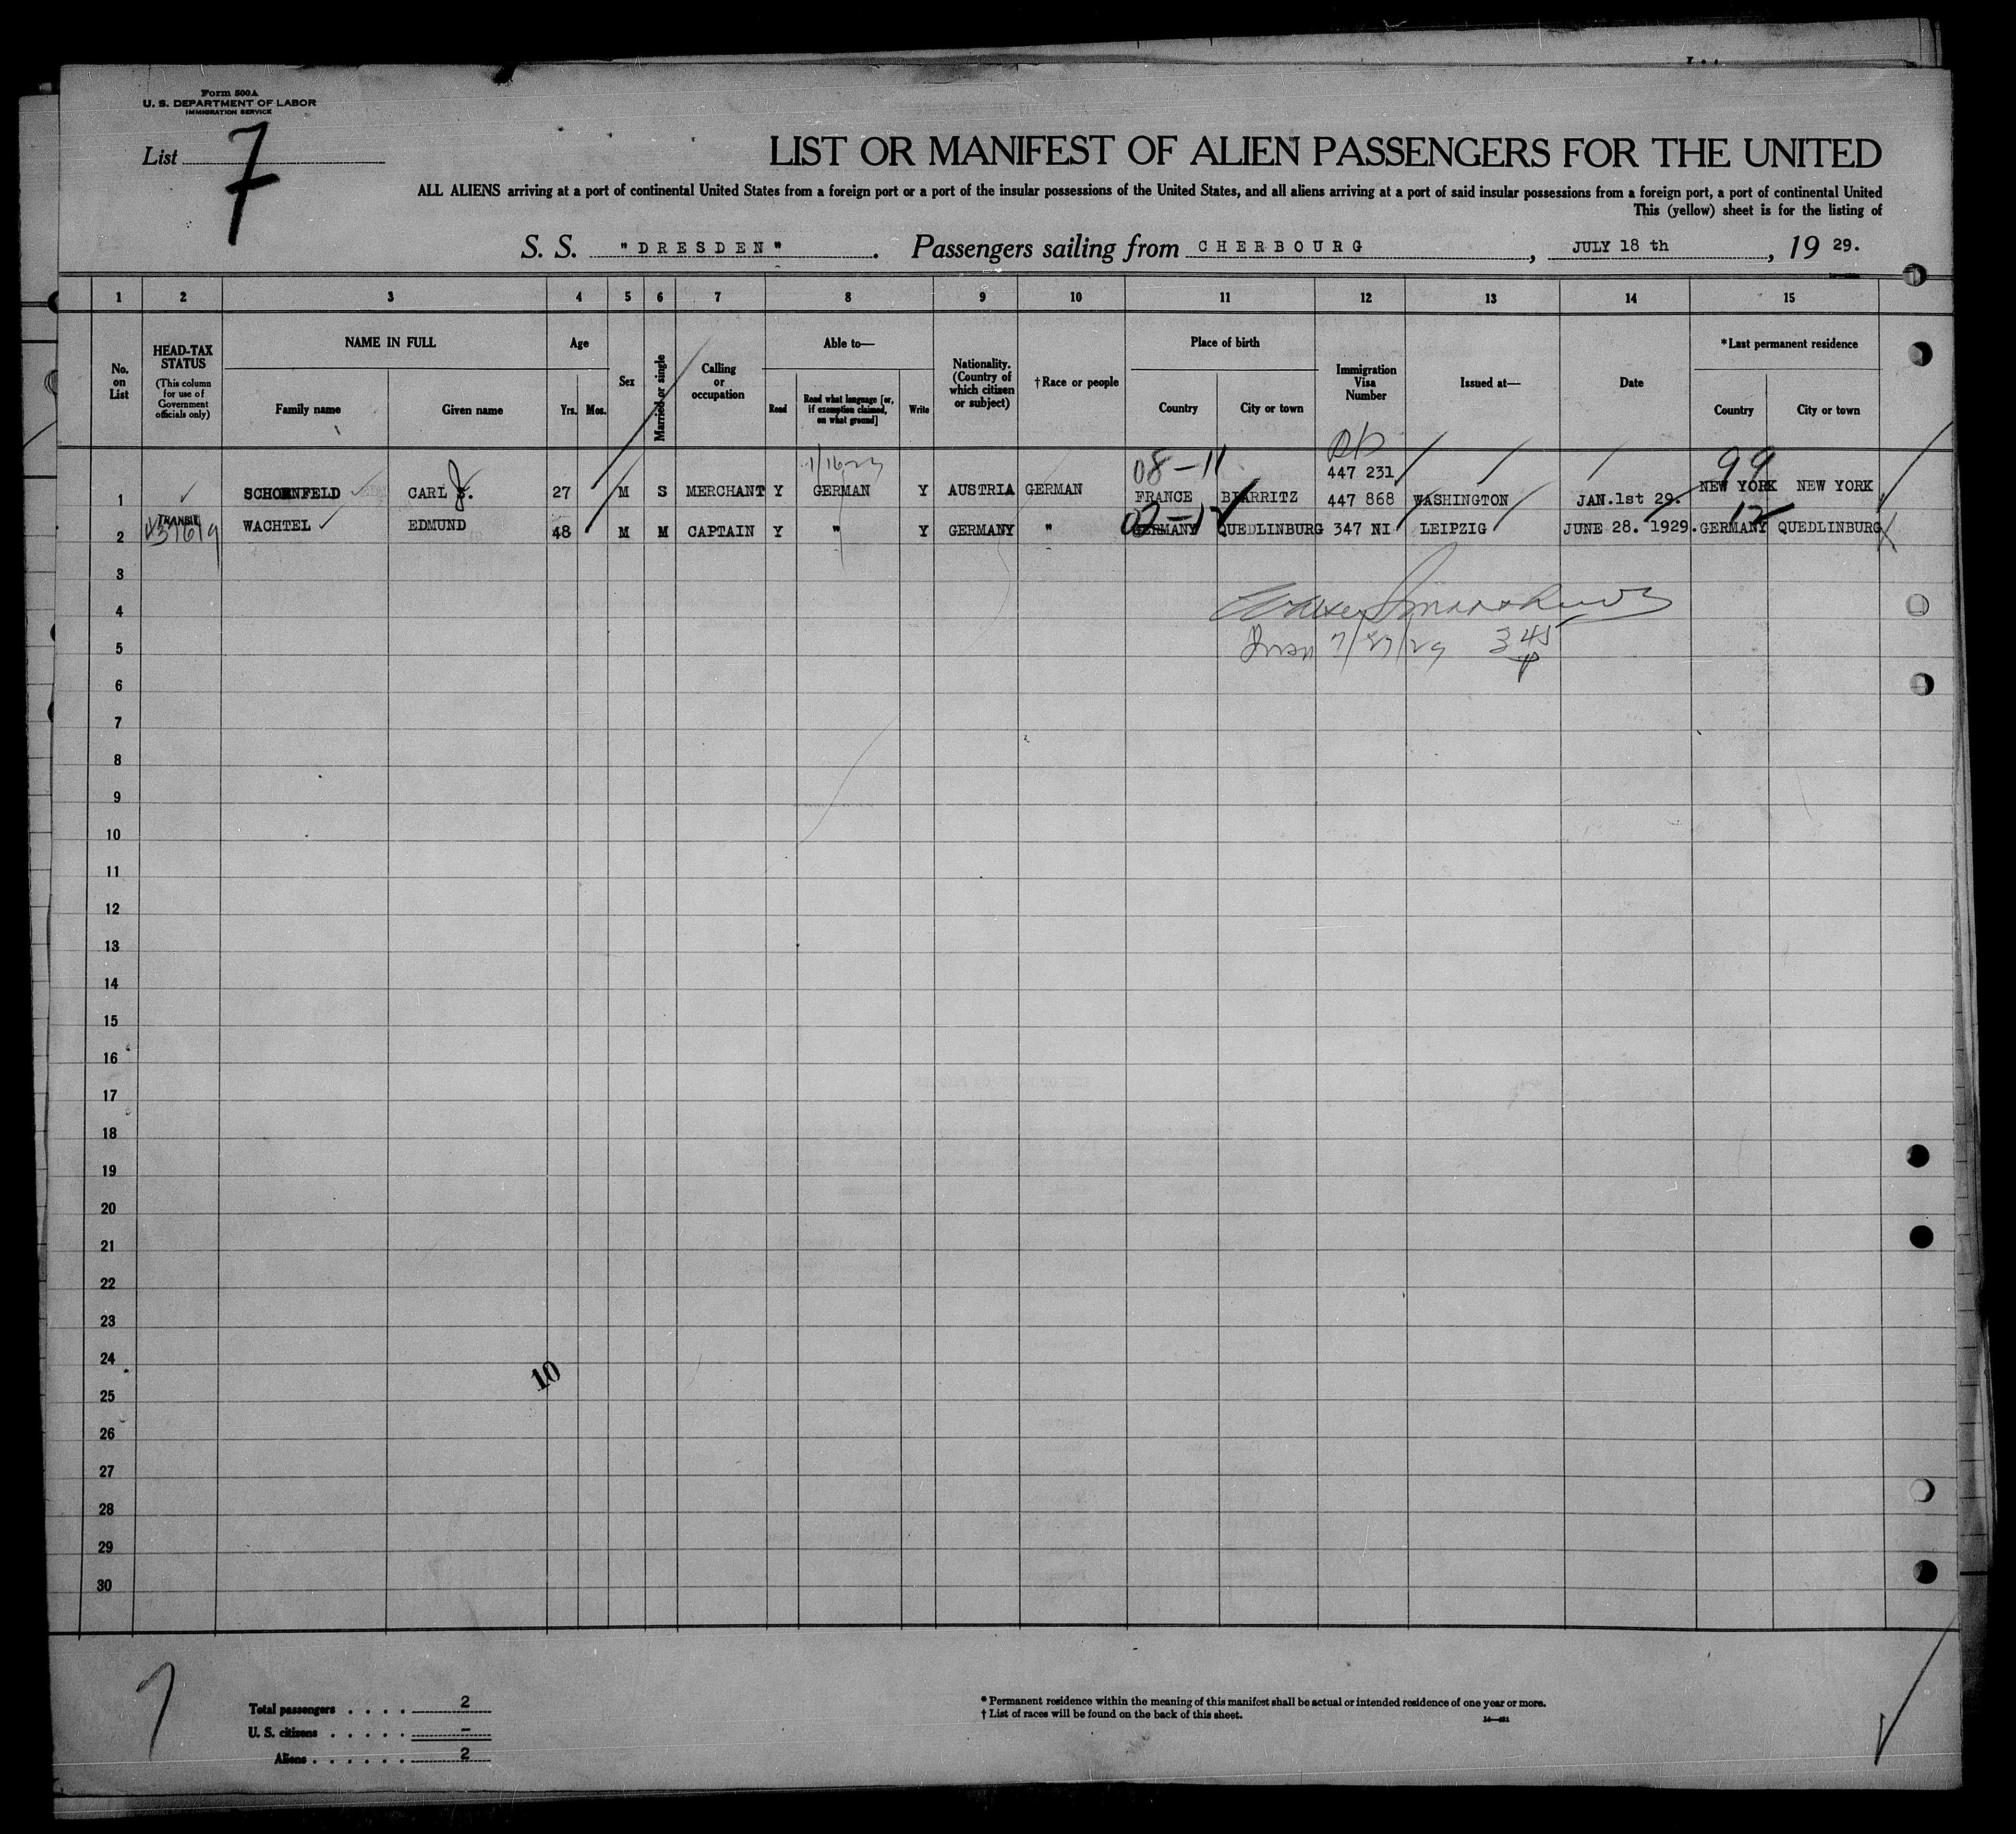 Form 500A
U. S. DEPARTMENT OF LABOR
IMMIGRATION SERVICE
List 7
LIST OR MANIFEST OF ALIEN PASSENGERS FOR THE UNITED
ALL ALIENS arriving at a port of continental United States from a foreign port or a port of the insular possessions of the United States, and all aliens arriving at a port of said insular possessions from a foreign port, a port of continental United
This (yellow) sheet is for the listing of
S. S. "DRESDEN". Passengers sailing from CHERBOURG, JULY 18 th, 19 29.
1 2 3 4 5 6 7 8 9 10 11 12 13 14 15
No. on List
HEAD-TAX STATUS
(This column for use of Government officials only)
NAME IN FULL
Family name Given name
Age
Yrs. Mos.
Sex
Married or single
Calling or occupation
Able to—
Read
Read what language [or, if exemption claimed, on what ground]
Write
Nationality. (Country of which citizen or subject)
†Race or people
Place of birth
Country City or town
Immigration Visa Number
Issued at—
Date
*Last permanent residence
Country City or town
08-11 99
447 231
1 SCHOENFELD CARL J. 27 M S MERCHANT Y GERMAN Y AUSTRIA GERMAN FRANCE BIARRITZ 447 868 WASHINGTON JAN.1st 29. NEW YORK NEW YORK
TRANSIT
02-12 12
2 WACHTEL EDMUND 48 M M CAPTAIN Y " Y GERMANY " GERMANY QUEDLINBURG 347 NI LEIPZIG JUNE 28. 1929. GERMANY QUEDLINBURG
3
4
5 7/27/29 3 45
6
7
8
9
10
11
12
13
14
15
16
17
18
19
20
21
22
23
24
10
25
26
27
28
29
30
7
Total passengers . . . . 2
U. S. citizens . . . . . –
Aliens . . . . . . 2
* Permanent residence within the meaning of this manifest shall be actual or intended residence of one year or more.
† List of races will be found on the back of this sheet.